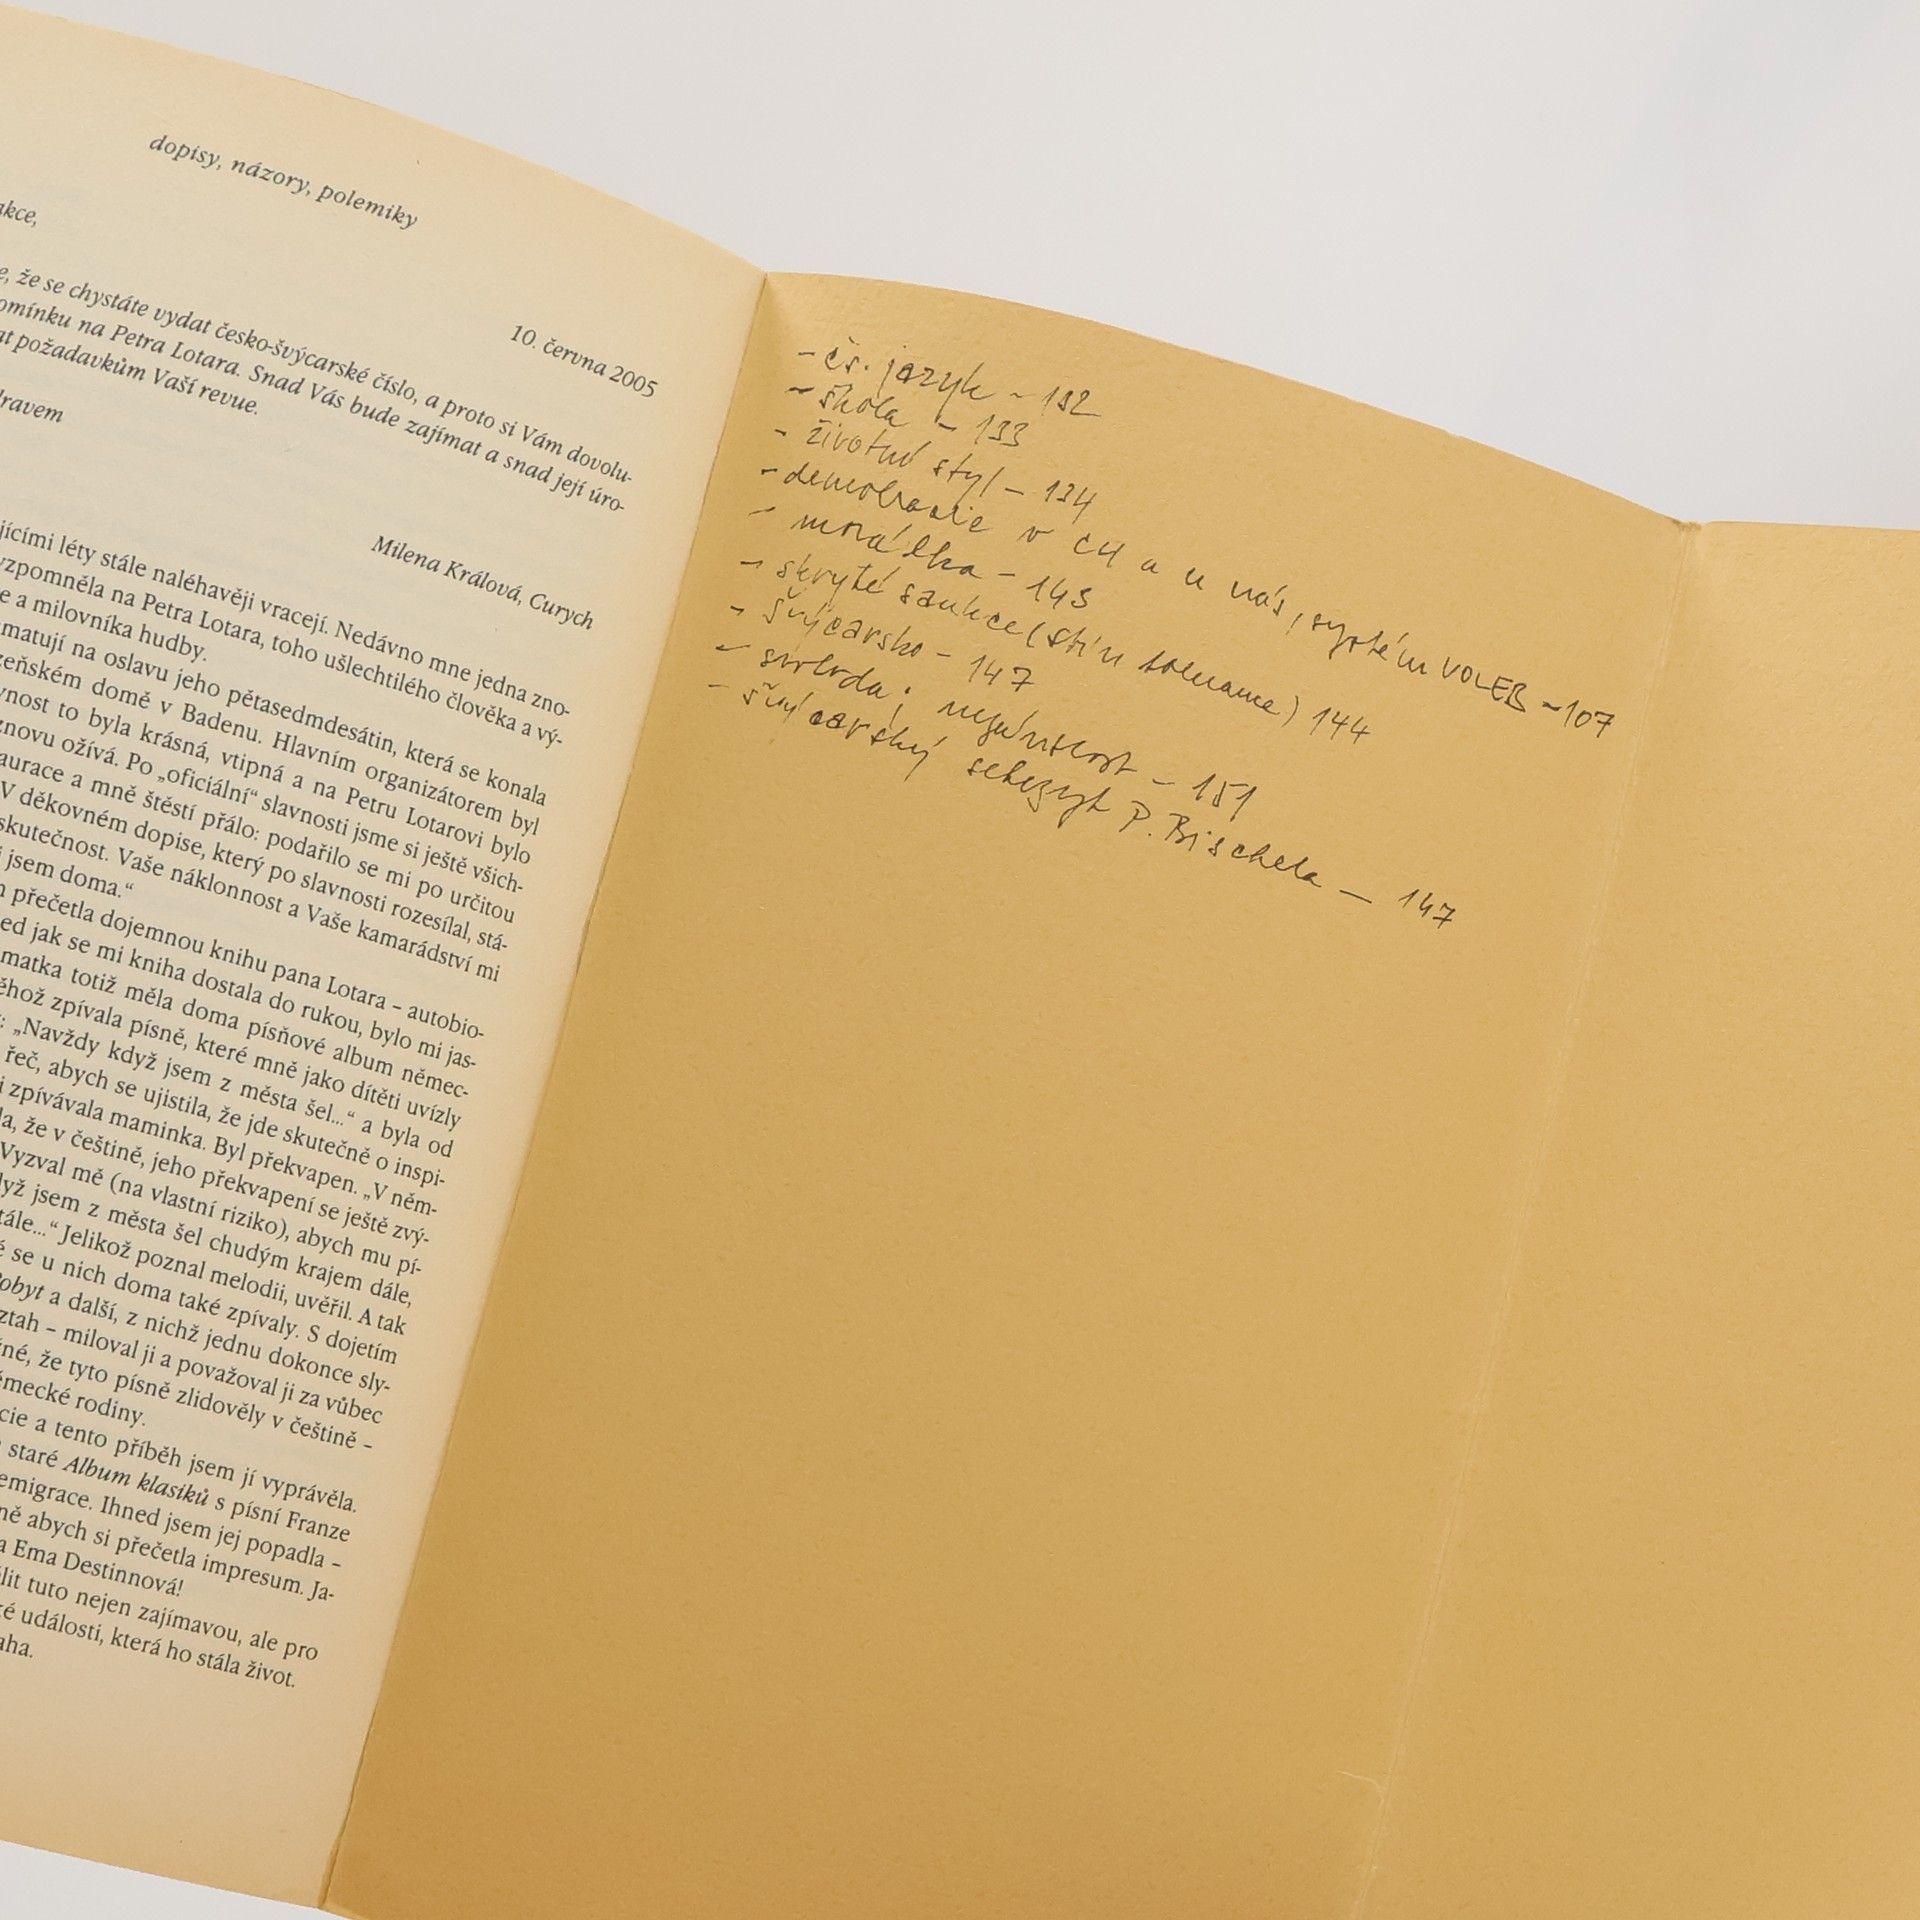 dopisy, názory, polemiky
akce,
10. června 2005
e, že se chystáte vydat česko-švýcarské číslo, a proto si Vám dovolu-
omínku na Petra Lotara. Snad Vás bude zajímat a snad její úro-
at požadavkům Vaší revue.
dravem
Milena Králová, Curych
jícími léty stále naléhavěji vracejí. Nedávno mne jedna zno-
vzpomněla na Petra Lotara, toho ušlechtilého člověka a vý-
e a milovníka hudby.
matují na oslavu jeho pětasedmdesátin, která se konala
zeňském domě v Badenu. Hlavním organizátorem byl
vnost to byla krásná, vtipná a na Petru Lotarovi bylo
znovu ožívá. Po „oficiální“ slavnosti jsme si ještě všich-
aurace a mně štěstí přálo: podařilo se mi po určitou
V děkovném dopise, který po slavnosti rozesílal, stá-
skutečnost. Vaše náklonnost a Vaše kamarádství mi
i jsem doma.“
m přečetla dojemnou knihu pana Lotara – autobio-
ed jak se mi kniha dostala do rukou, bylo mi jas-
matka totiž měla doma písňové album němec-
ěhož zpívala písně, které mně jako dítěti uvízly
: „Navždy když jsem z města šel...“ a byla od
řeč, abych se ujistila, že jde skutečně o inspi-
i zpívávala maminka. Byl překvapen. „V něm-
la, že v češtině, jeho překvapení se ještě zvý-
Vyzval mě (na vlastní riziko), abych mu pí-
dyž jsem z města šel chudým krajem dále,
tále...“ Jelikož poznal melodii, uvěřil. A tak
é se u nich doma také zpívaly. S dojetím
Pobyt a další, z nichž jednu dokonce sly-
ztah – miloval ji a považoval ji za vůbec
né, že tyto písně zlidověly v češtině –
ěmecké rodiny.
cie a tento příběh jsem jí vyprávěla.
staré Album klasiků s písní Franze
emigrace. Ihned jsem jej popadla –
ně abych si přečetla impresum. Ja-
a Ema Destinnová!
lit tuto nejen zajímavou, ale pro
ké události, která ho stála život.
aha.
- čs. jazyk - 132
- škola - 133
- životní styl - 134
- demokracie v CH a u nás, systém VOLEB - 107
- morálka - 143
- skryté sankce (stín tolerance) 144
- švýcarsko - 147
- svoboda; nezávislost - 151
- švýcarský P. Bischela - 147